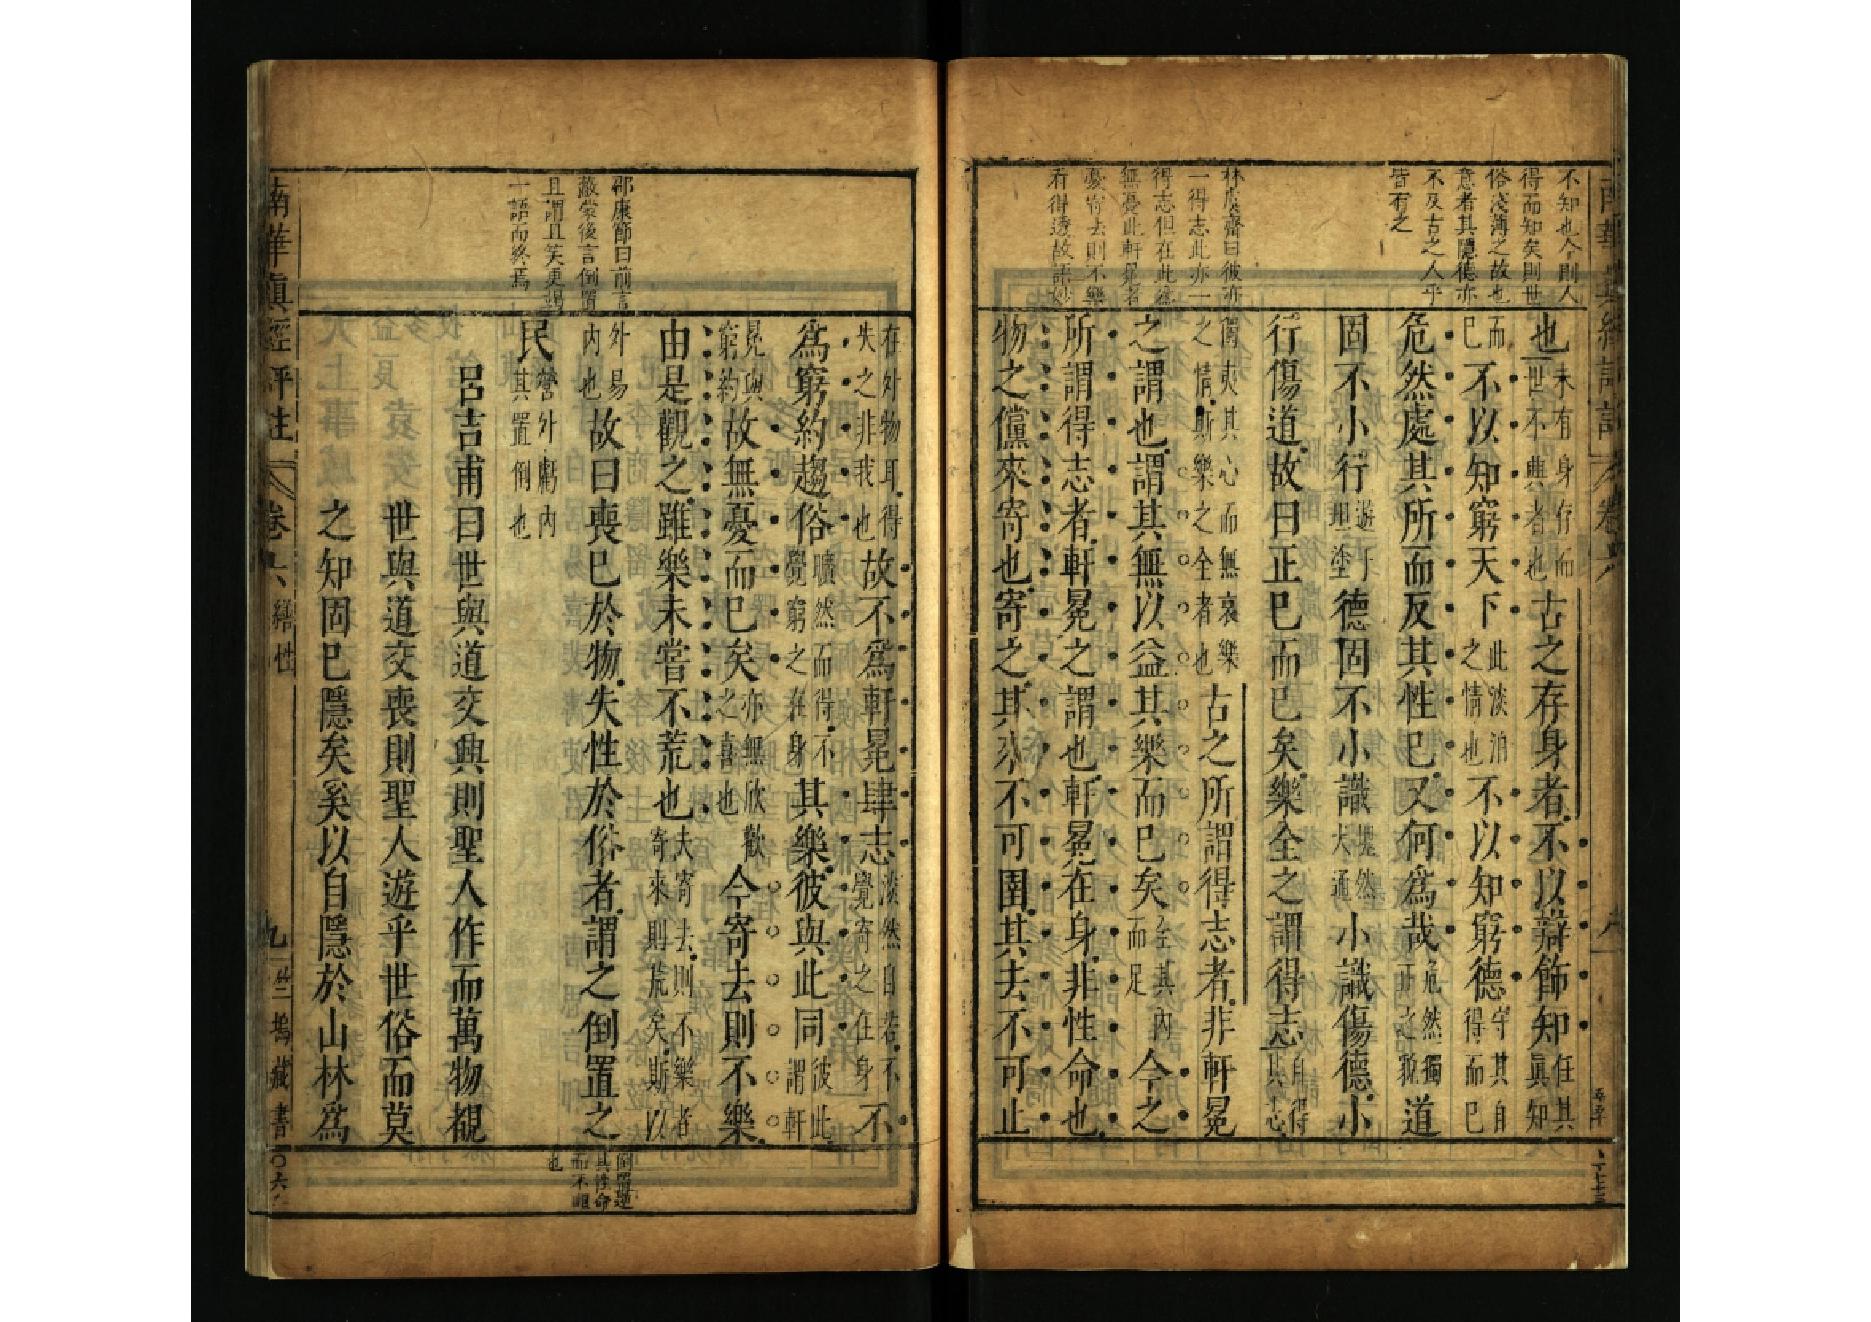 不知也今則人
得而知矣則世
俗淺薄之故也
意者其隱德亦
不及古之人乎
皆有之
林鬳齋曰彼亦
一得志此亦一
得志但在此爲
無憂此軒冕者
憂寄去則不樂
看得透故語妙
也未有身存而世不興者也古之存身者不以辯飾知任其眞知
而已不以知窮天下此淡泊之情也不以知窮德守其自得而已
危然處其所而反其性已又何爲哉危然獨所之貌道
固不小行遊於坦塗德固不小識塊然大通小識傷德小
行傷道故曰正已而已矣樂全之謂得志自得其志
獨夷其心而無哀樂之情斯樂之全者也古之所謂得志者非軒冕
之謂也謂其無以益其樂而已矣全其內而足今之
所謂得志者軒冕之謂也軒冕在身非性命也
物之儻來寄也寄之其來不可圉其去不可止
邵康節曰前言
蔽蒙後言倒置
且謂且笑更竭
一語而終焉
在外物耳得失之非我也故不爲軒冕肆志淡然自若不覺寄之在身不
爲窮約趨俗曠然而得不覺窮之在身其樂彼與此同彼此謂軒
冕與窮約故無憂而已矣亦無欣歡之喜也今寄去則不樂
由是觀之雖樂未嘗不荒也夫寄去則不樂者寄來則荒矣斯以
外易內也故曰喪已於物失性於俗者謂之倒置之
民營外虧內其置倒也
倒置逆
其性命
而不順
也
呂吉甫曰世與道交興則聖人作而萬物覩
世與道交喪則聖人遊乎世俗而莫
之知固已隱矣奚以自隱於山林爲
南華眞經評註 卷六 繕性 九 三塢藏書